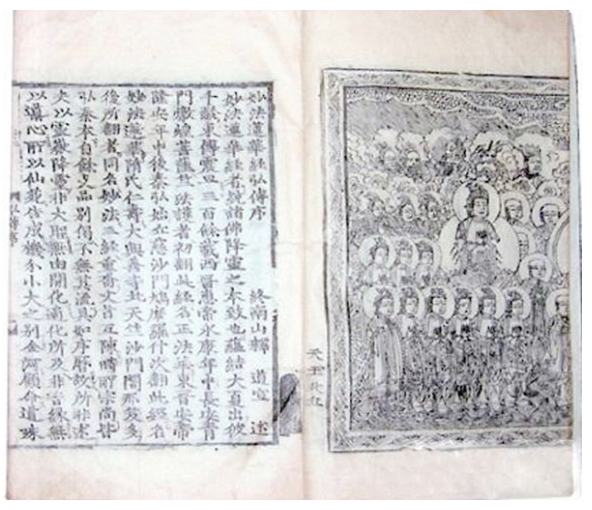 妙法蓮華經弘傳序 終南山釋 道宣 述
妙法蓮華經者統諸佛降靈之本致也蘊結大夏出彼
千齡東傳震旦三百餘載西晉惠帝永康年中長安青
門燉煌菩薩竺法護者初翻此經名正法華東晉安帝
隆安年中後秦弘始龜茲沙門鳩摩羅什次翻此經名
妙法蓮華隋氏仁壽大興善寺北天竺沙門闍那笈多
後所翻者同名妙法三經重沓文旨互陳時所宗尚皆
弘秦本自餘支品別偈不無其流具如序曆故所非述
夫以靈嶽降靈非大聖無由開化適化所及非昔緣無
以導心所以仙苑告成機分小大之別金河顧命道殊
天王